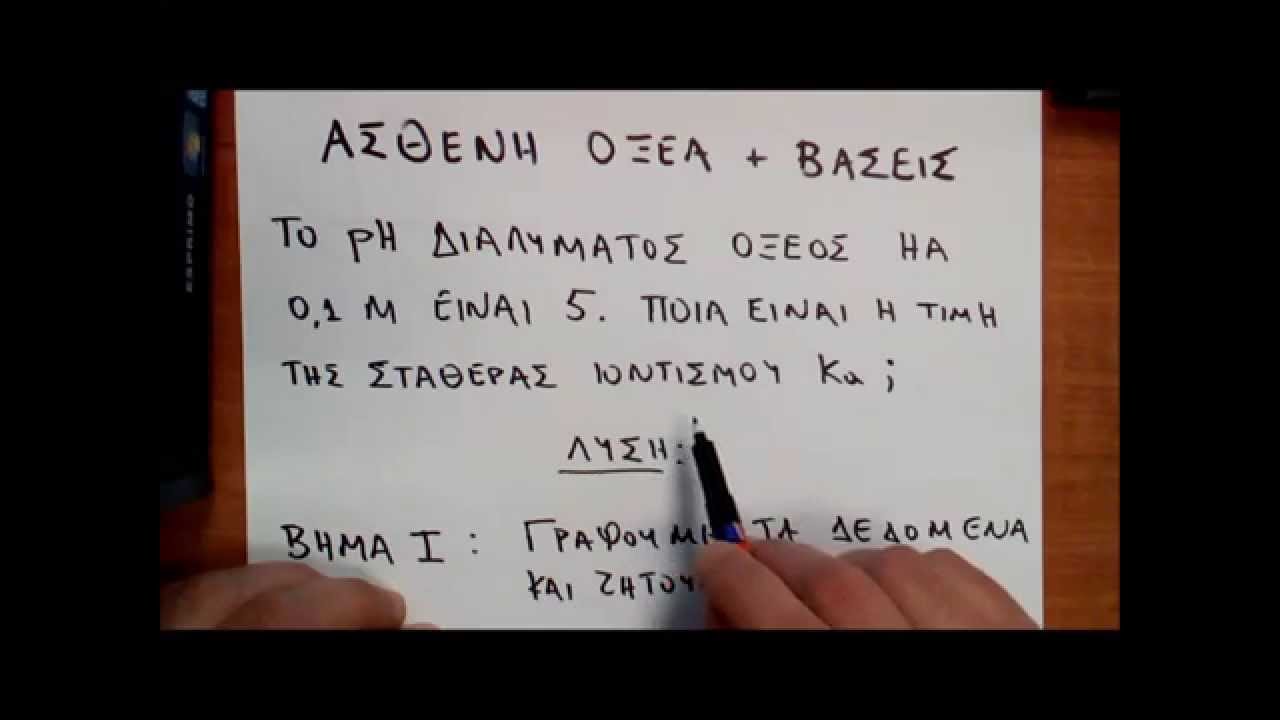 ΑΣΘΕΝΗ ΟΞΕΑ + ΒΑΣΕΙΣ
ΤΟ pH ΔΙΑΛΥΜΑΤΟΣ ΟΞΕΟΣ ΗΑ
0,1 Μ ΕΙΝΑΙ 5. ΠΟΙΑ ΕΙΝΑΙ Η ΤΙΜΗ
ΤΗΣ ΣΤΑΘΕΡΑΣ ΙΟΝΤΙΣΜΟΥ Ka ;
ΛΥΣΗ:
ΒΗΜΑ Ι : ΤΑ ΔΕΔΟΜΕΝΑ
ΚΑΙ